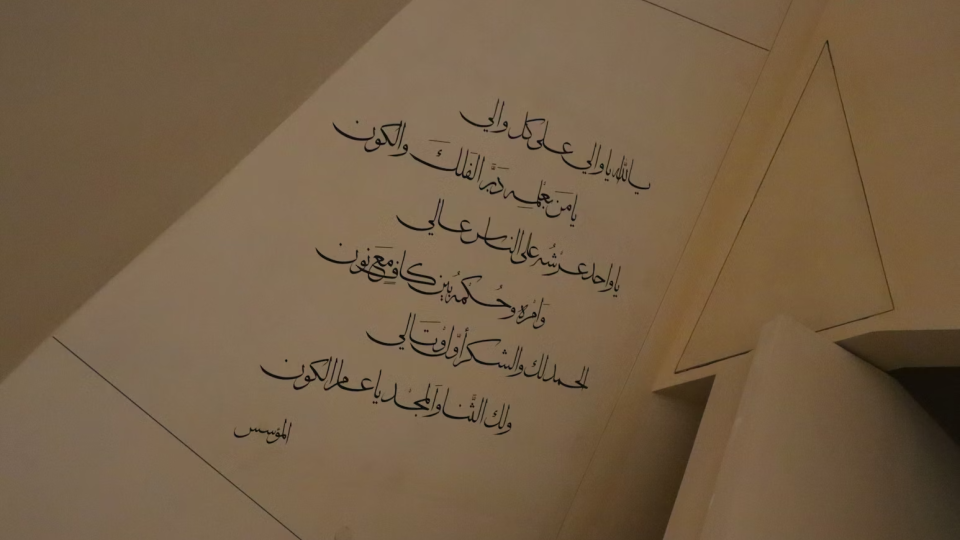 يا الله يا والي على كل والي
يا من بعلمه دبَّر الفلك والكون
يا واحد عرشه على الناس عالي
وامره وحكمه بين كافٍ مع نون
الحمد لك والشكر أوّل وتالي
ولك الثَّنا والمجد يا عالم الكون
المؤسس